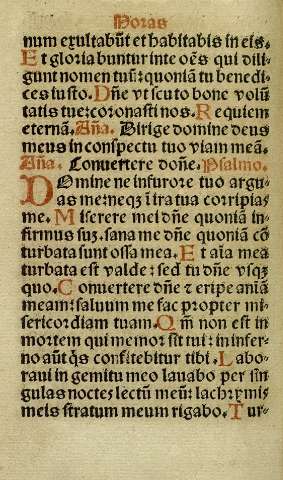 Horas
num exultabũt et habitabis in eis.
Et gloria buntur inte oẽs qui dili-
gunt nomen tuũ: quoniã tu benedi-
ces iusto. Dñe vt scuto bone volũ
tatis tue: coronasti nos. Requiem
eternã. Aña. Dirige domine deus
meus in conspectu tuo viam meã.
Aña. Conuertere doñe. Psalmo.
Domine ne infurore tuo argu-
as me: neqꝫ ĩ ira tua corripias
me. Miserere mei dñe quoniã in-
firmus suꝫ. sana me dñe quoniã cõ
turbata sunt ossa mea. Et aĩa mea
turbata est valde: sed tu dñe vsqꝫ
quo. Conuertere dñe ⁊ eripe aniã
meam: saluum me fac propter mi-
sericordiam tuam. Qm̃ non est in
mortem qui memor sit tui: in infer-
no aũt q̃s confitebitur tibi. Labo-
raui in gemitu meo lauabo per sin
gulas noctes lectũ meũ: lachrymis
meis stratum meum rigabo. Tur-